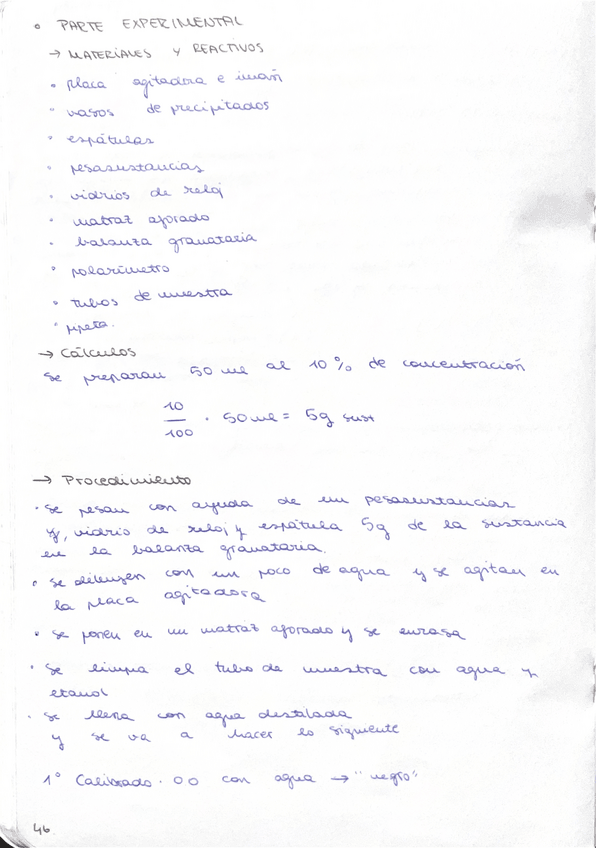 • PARTE EXPERIMENTAL
→ MATERIALES Y REACTIVOS
• placa agitadora e imán
• vasos de precipitados
• espátulas
• pesasustancias
• vidrios de reloj
• matraz aforado
• balanza granataria
• polarímetro
• tubos de muestra
• pipeta.
→ Cálculos
Se preparan 50 ml al 10% de concentración
10/100 · 50ml = 5g sust
→ Procedimiento
• Se pesan con ayuda de un pesasustancias
y, vidrio de reloj y espátula 5g de la sustancia
en la balanza granataria.
• Se diluyen con un poco de agua y se agitan en
la placa agitadora
• Se ponen en un matraz aforado y se enrasa
• Se limpia el tubo de muestra con agua y
etanol
• Se llena con agua destilada
y se va a hacer lo siguiente
1º Calibrado · 00 con agua → "negro"
46